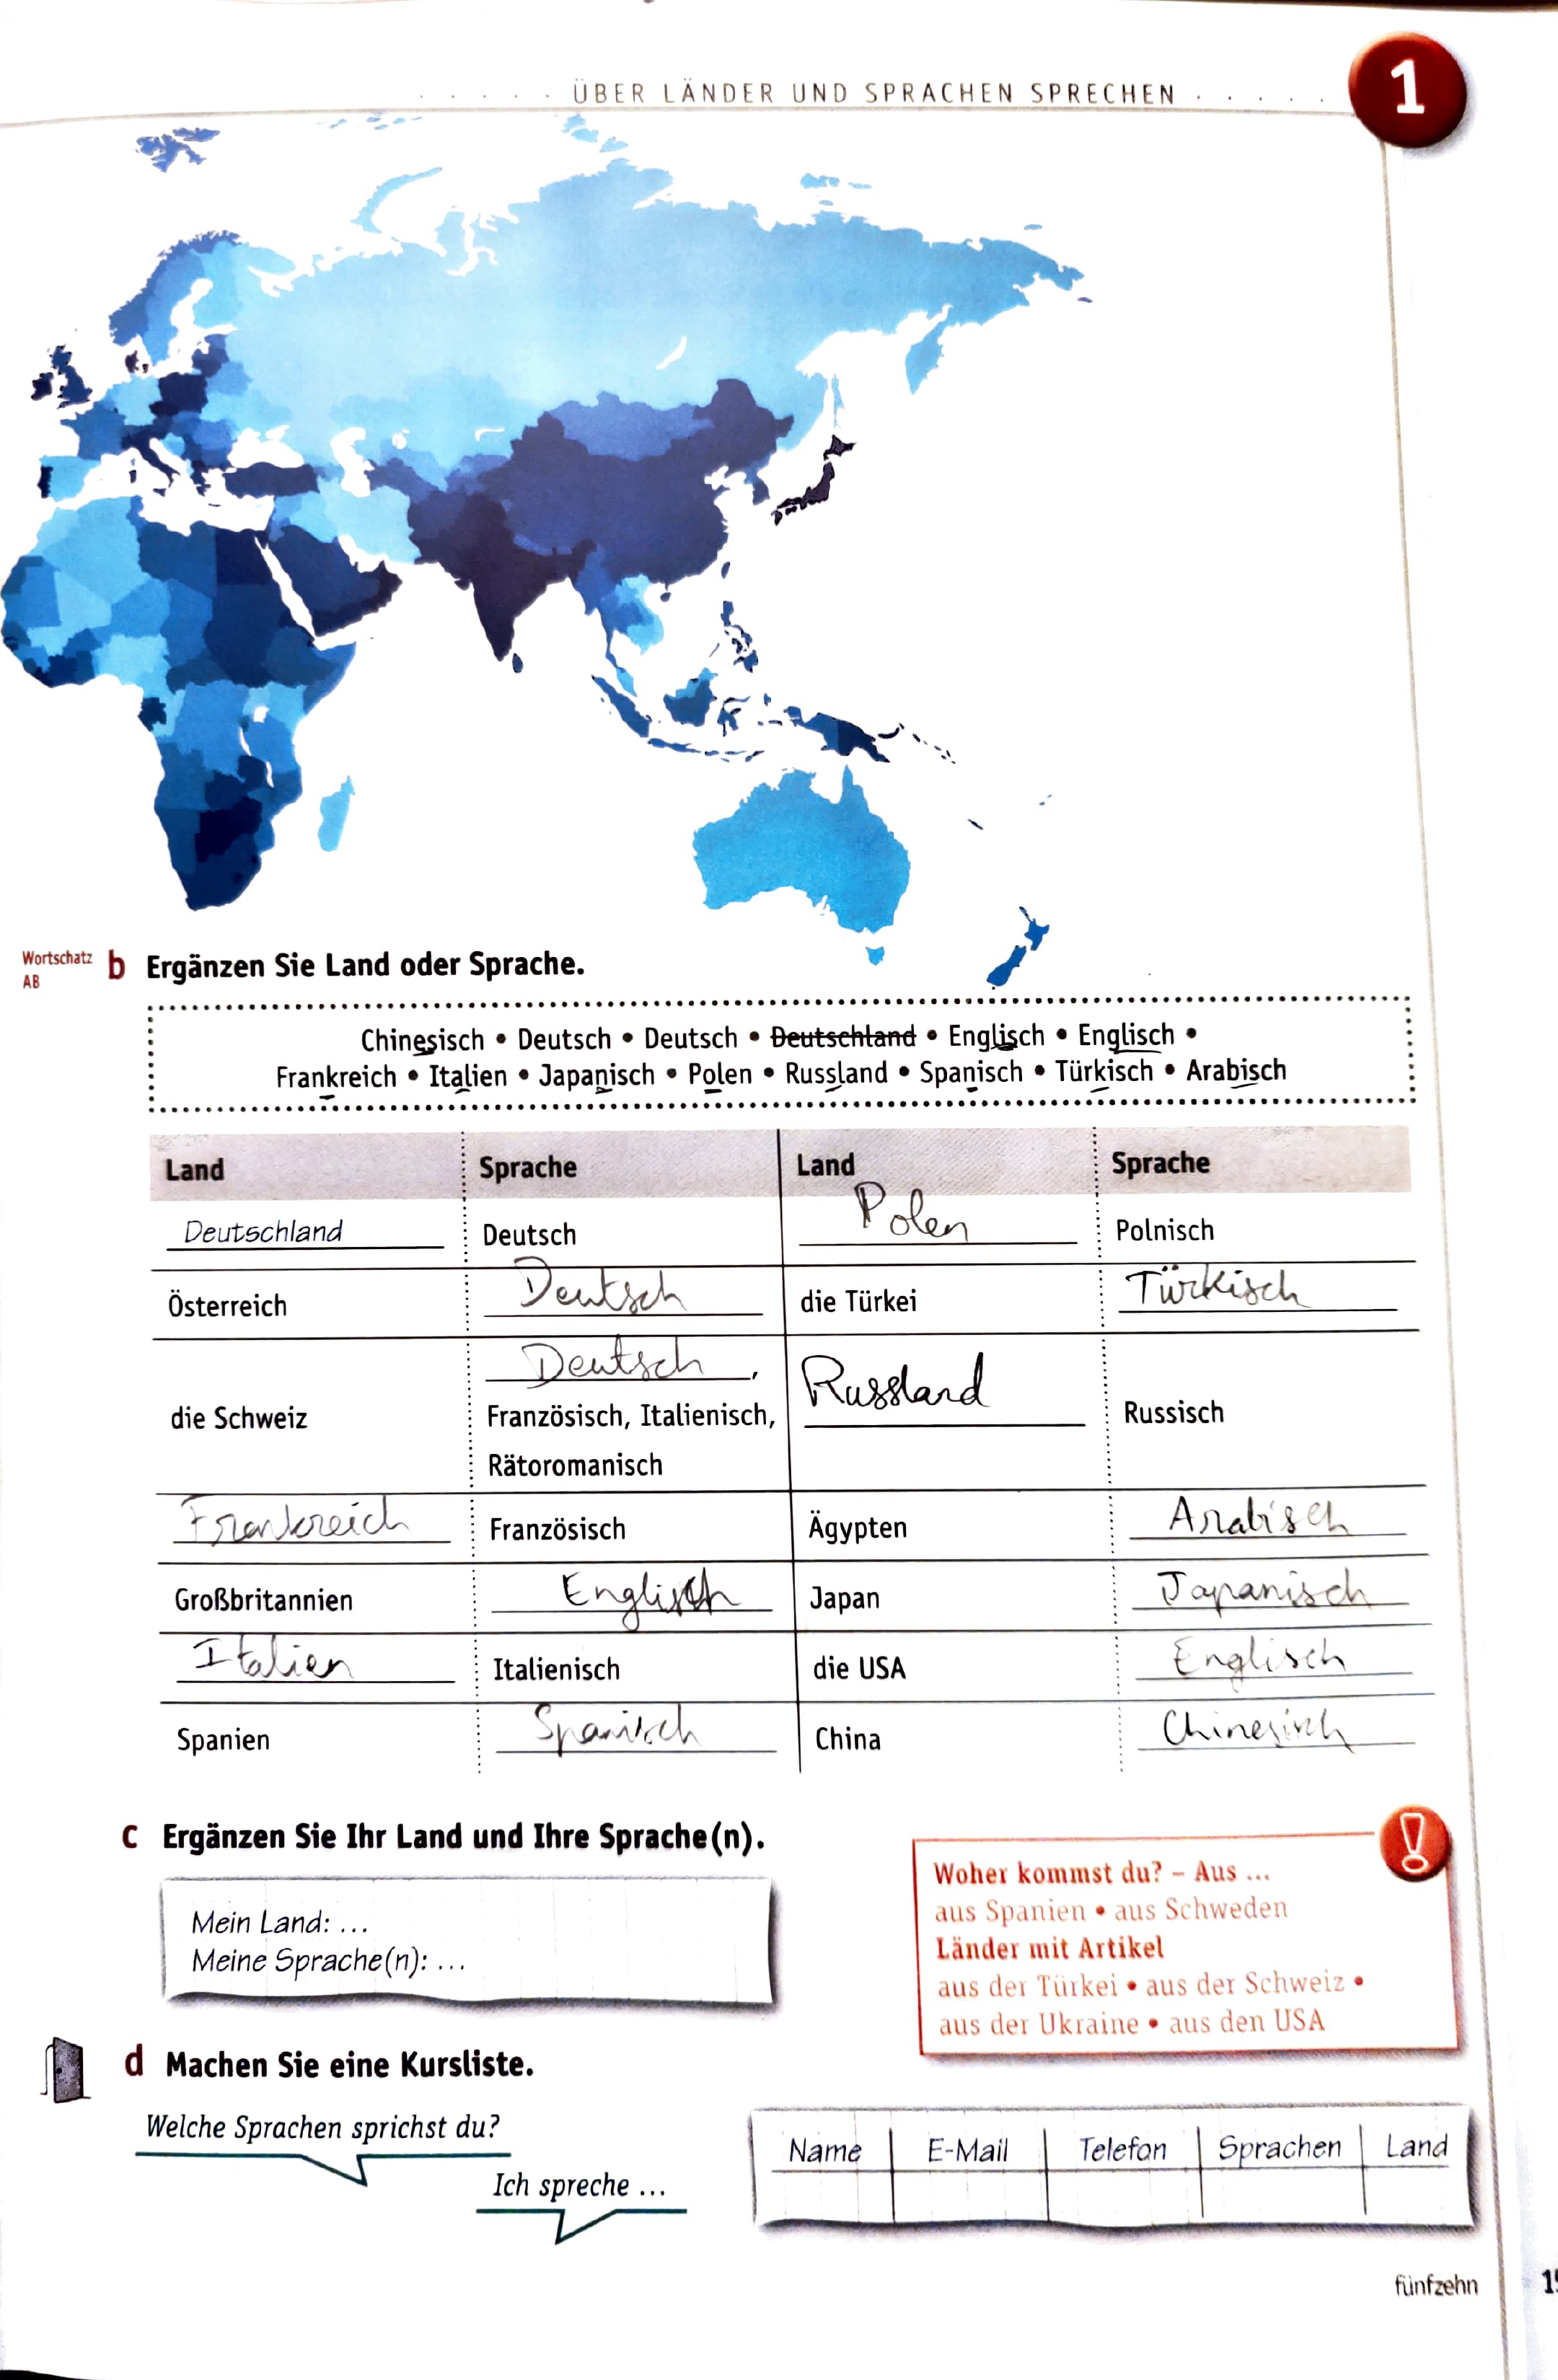 ÜBER LÄNDER UND SPRACHEN SPRECHEN
1
Wortschatz
AB
b Ergänzen Sie Land oder Sprache.
Chinesisch • Deutsch • Deutsch • Deutschland • Englisch • Englisch •
Frankreich • Italien • Japanisch • Polen • Russland • Spanisch • Türkisch • Arabisch
Land Sprache Land Sprache
Deutschland Deutsch Polen Polnisch
Österreich Deutsch die Türkei Türkisch
die Schweiz Deutsch, Russland Russisch
Französisch, Italienisch,
Rätoromanisch
Frankreich Französisch Ägypten Arabisch
Großbritannien Englisch Japan Japanisch
Italien Italienisch die USA Englisch
Spanien Spanisch China Chinesisch
c Ergänzen Sie Ihr Land und Ihre Sprache(n).
Mein Land: ...
Meine Sprache(n): ...
!
Woher kommst du? – Aus ...
aus Spanien • aus Schweden
Länder mit Artikel
aus der Türkei • aus der Schweiz •
aus der Ukraine • aus den USA
d Machen Sie eine Kursliste.
Welche Sprachen sprichst du?
Ich spreche ...
Name E-Mail Telefon Sprachen Land
fünfzehn